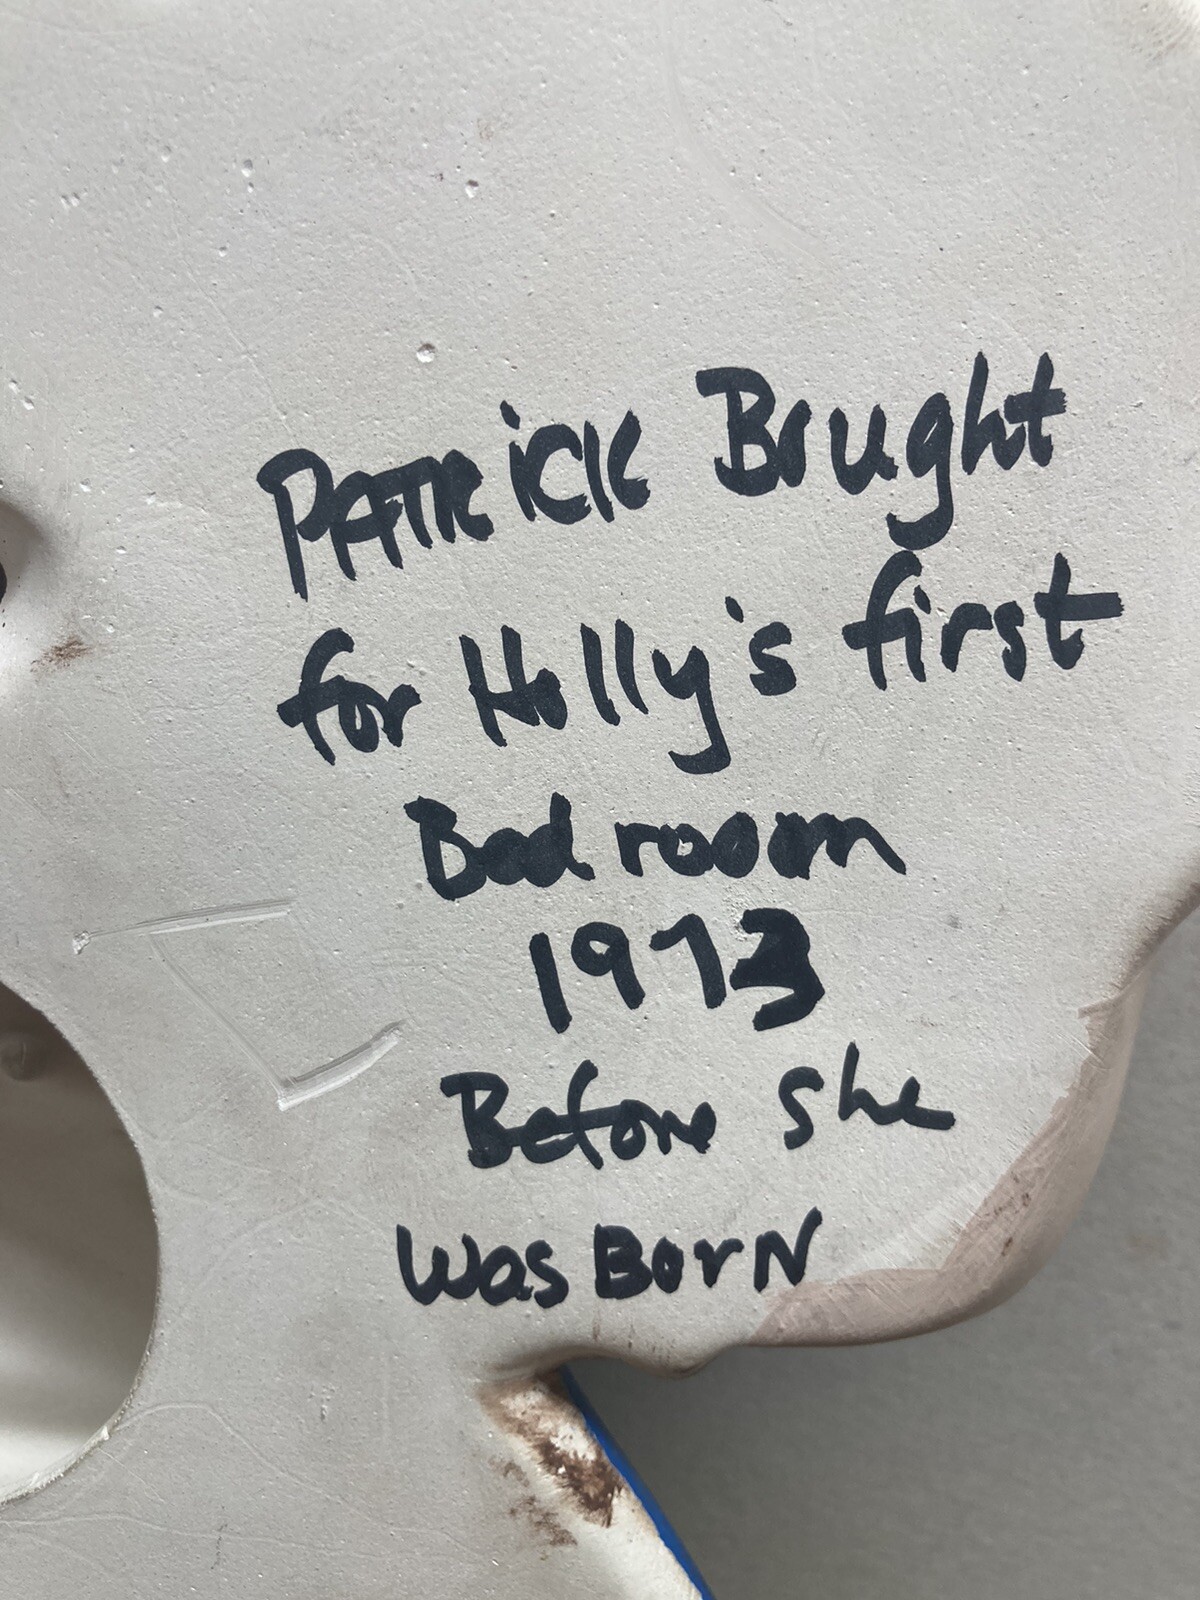 PATRICK Brught
for Holly's first
Bedrooom
1973
Before She
Was BorN